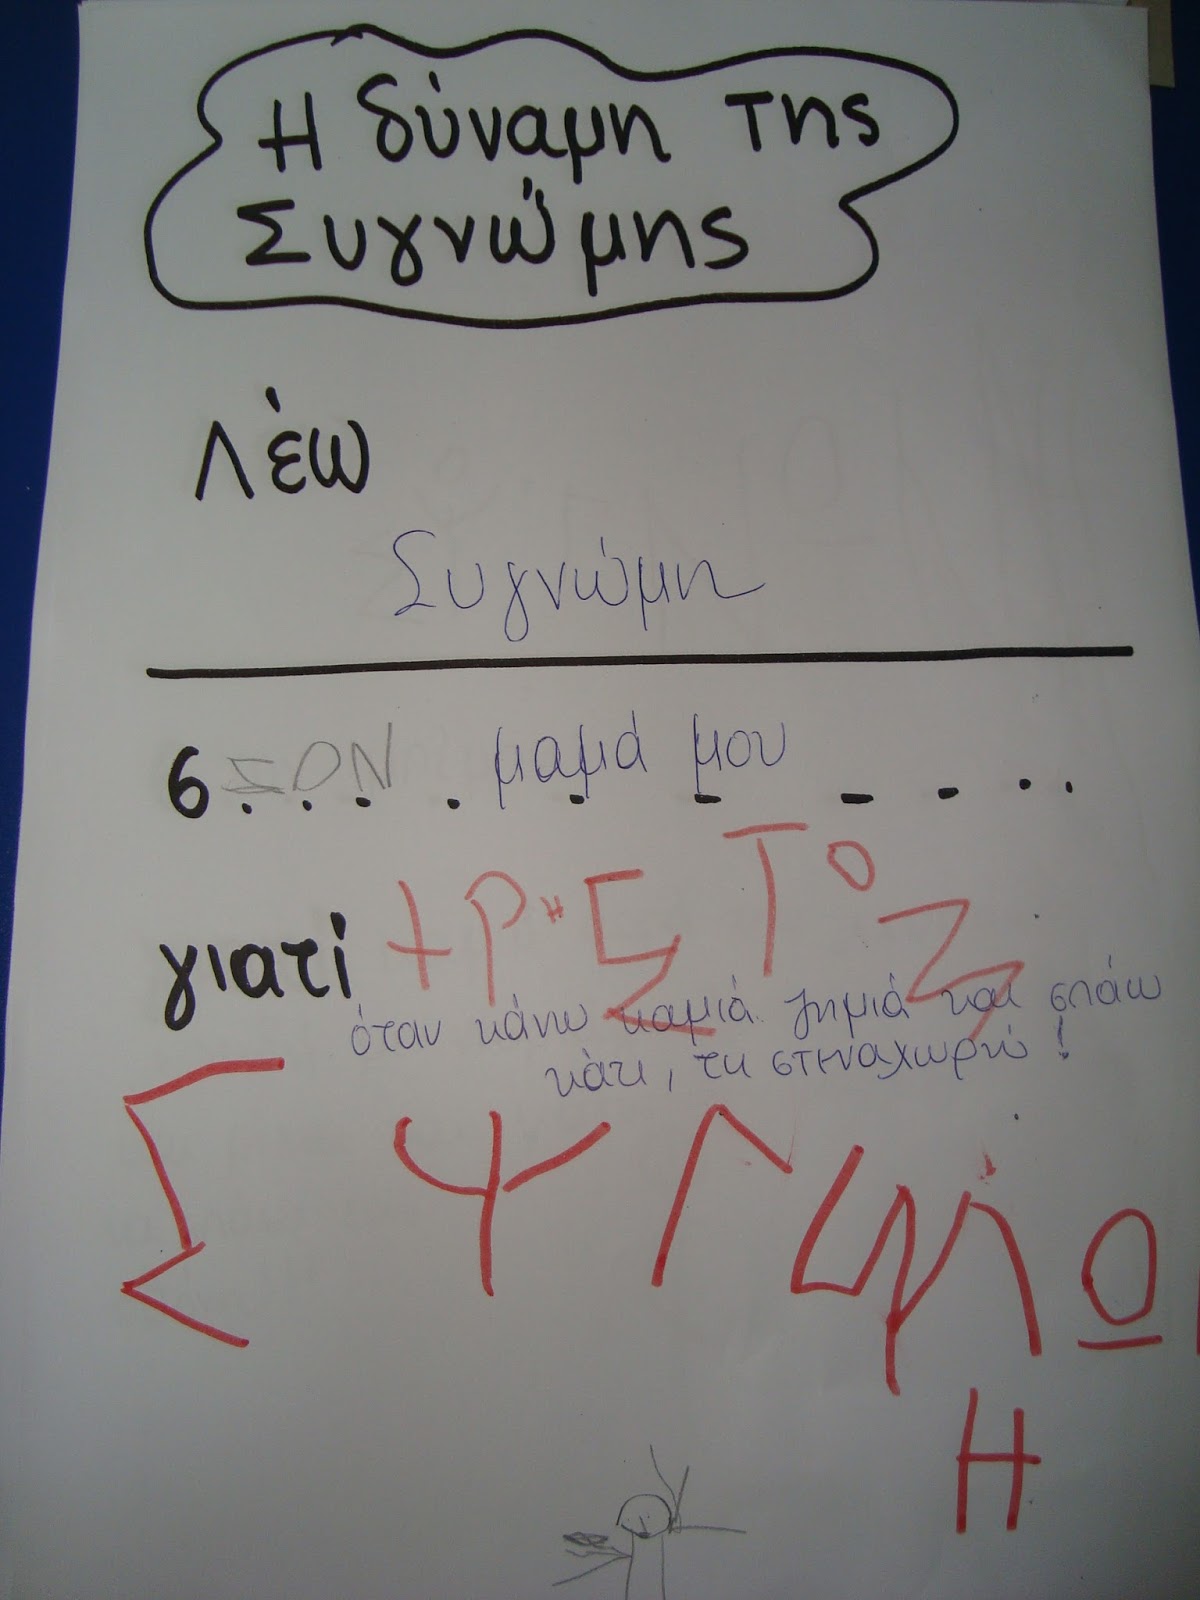 Η δύναμη της
Συγνώμης
Λέω
Συγνώμη
σ ΣΟΝ μαμά μου
γιατί ΧΡΗΣΤΟΣ
όταν κάνω καμιά ζημιά και σπάω
κάτι, τη στηναχωρώ!
Η